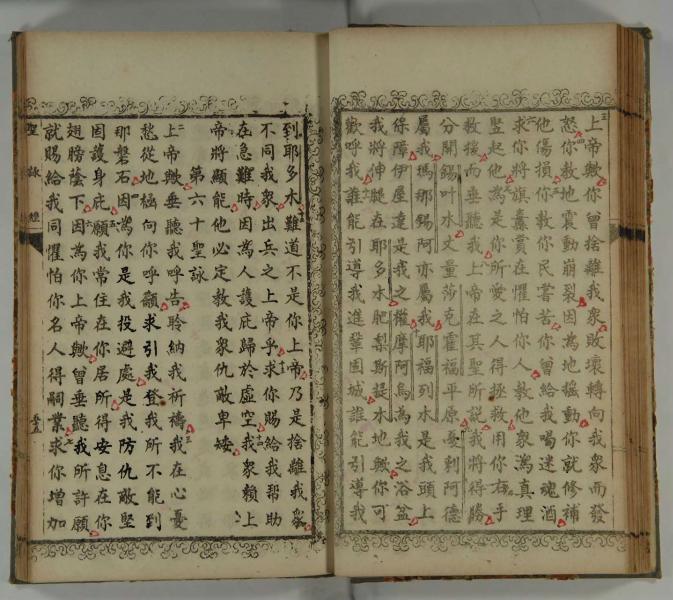 上帝歟你曾捨離我衆敗壞轉向我衆而發
怒你教地震動崩裂因為地搖動你就修補
他傷損你教你民嘗苦你曾給我喝迷魂酒
求你將旗纛賞在懼怕你人教他衆為真理
豎起他為是你所愛之人得拯救用你右手
救援而垂聽我上帝在其聖所說我將得勝
分開錫叶水丈量莎克霍福平原曼剌阿德
屬我瑪那錫阿亦屬我耶福列木是我頭上
保障伊屋達是我之權摩阿烏為我之浴盆
我將伸腿在耶多木肥梨斯提木地歟你可
歡呼我誰能引導我進鞏固城誰能引導我
到耶多木難道不是你上帝乃是捨離我衆
不同我衆出兵之上帝乎求你賜給我幫助
在急難時因為人護庇歸於虛空我衆賴上
帝將顯能他必定教我衆仇敵卑矮
第六十聖詠
上帝歟垂聽我呼告聆納我祈禱我在心憂
愁從地極向你呼籲求引我登我所不能到
那磐石因為你是我投避處是我防仇敵堅
固護身庇願我常住在你居所得安息在你
翅膀蔭下因為你上帝歟曾垂聽我所許願
就賜給我同懼怕你名人得嗣業求你增加
聖詠經